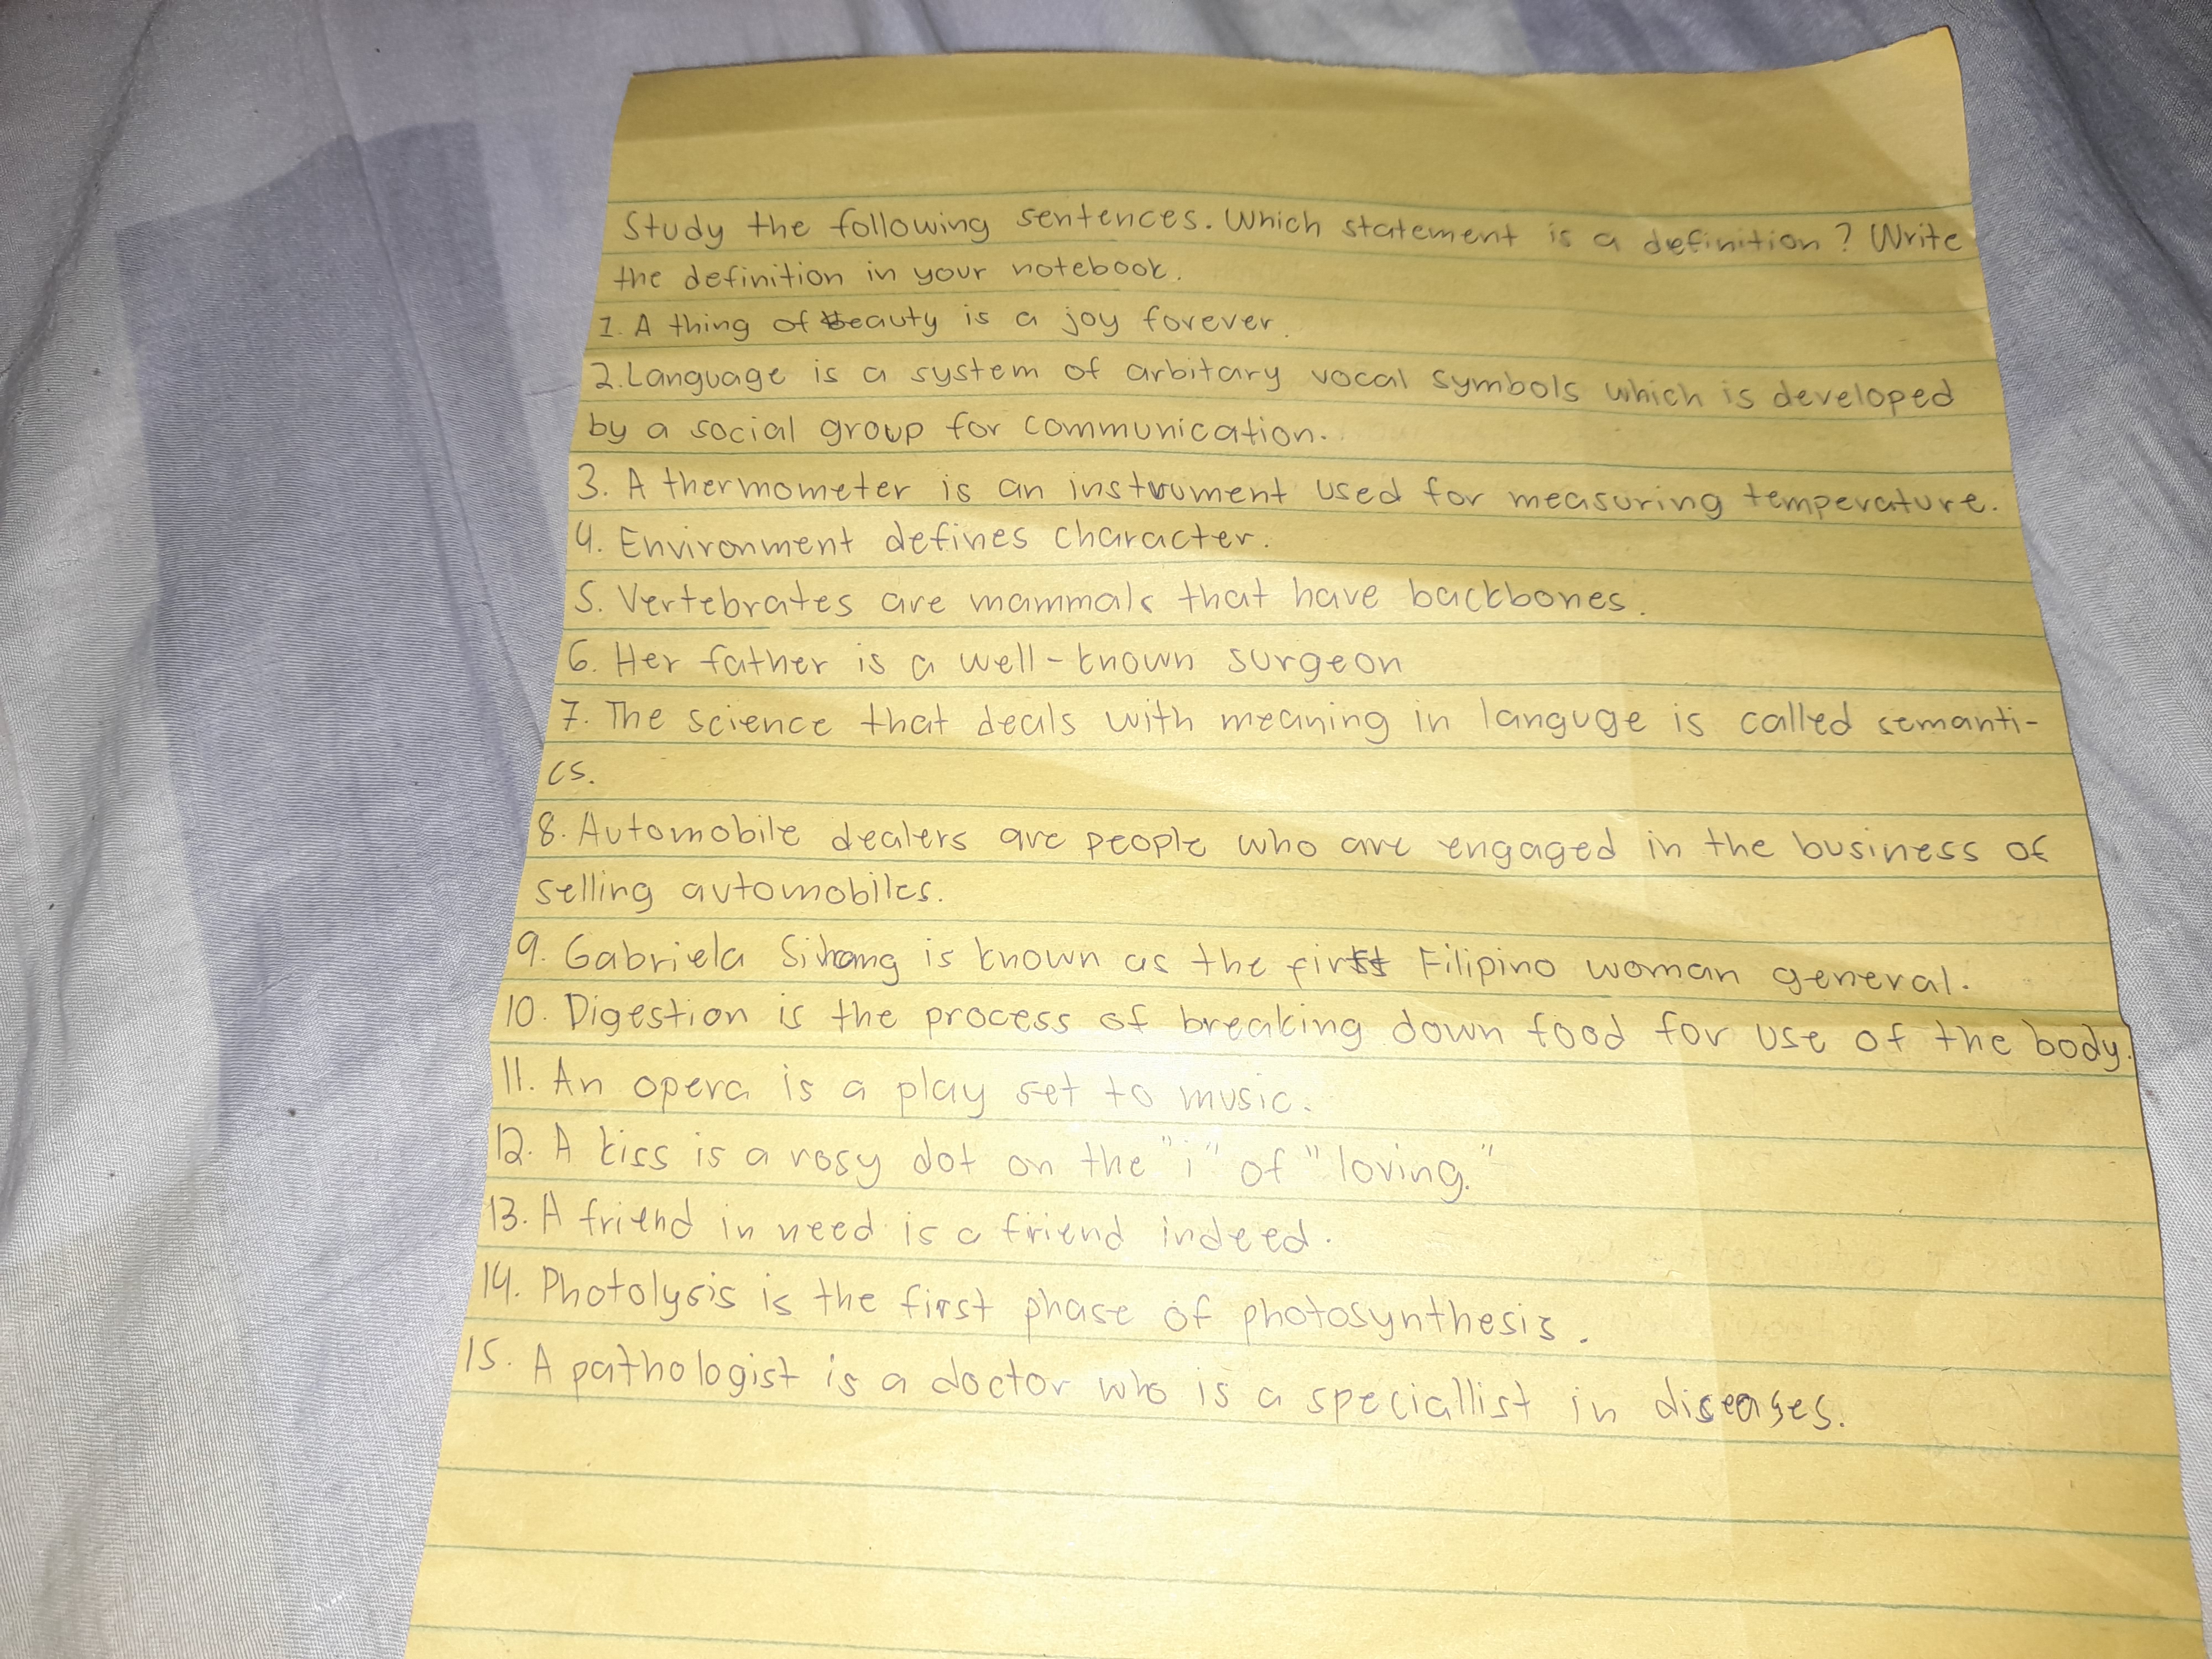 Study the following sentences. Which statement is a definition? Write
the definition in your notebook.
1. A thing of beauty is a joy forever.
2. Language is a system of arbitary vocal symbols which is developed
by a social group for communication.
3. A thermometer is an instrument used for measuring temperature.
4. Environment defines character.
5. Vertebrates are mammals that have backbones.
6. Her father is a well-known surgeon
7. The science that deals with meaning in languge is called semanti-
cs.
8. Automobile dealers are people who are engaged in the business of
selling automobiles.
9. Gabriela Silang is known as the first Filipino woman general.
10. Digestion is the process of breaking down food for use of the body.
11. An opera is a play set to music.
12. A kiss is a rosy dot on the "i" of "loving."
13. A friend in need is a friend indeed.
14. Photolysis is the first phase of photosynthesis.
15. A pathologist is a doctor who is a speciallist in diseases.